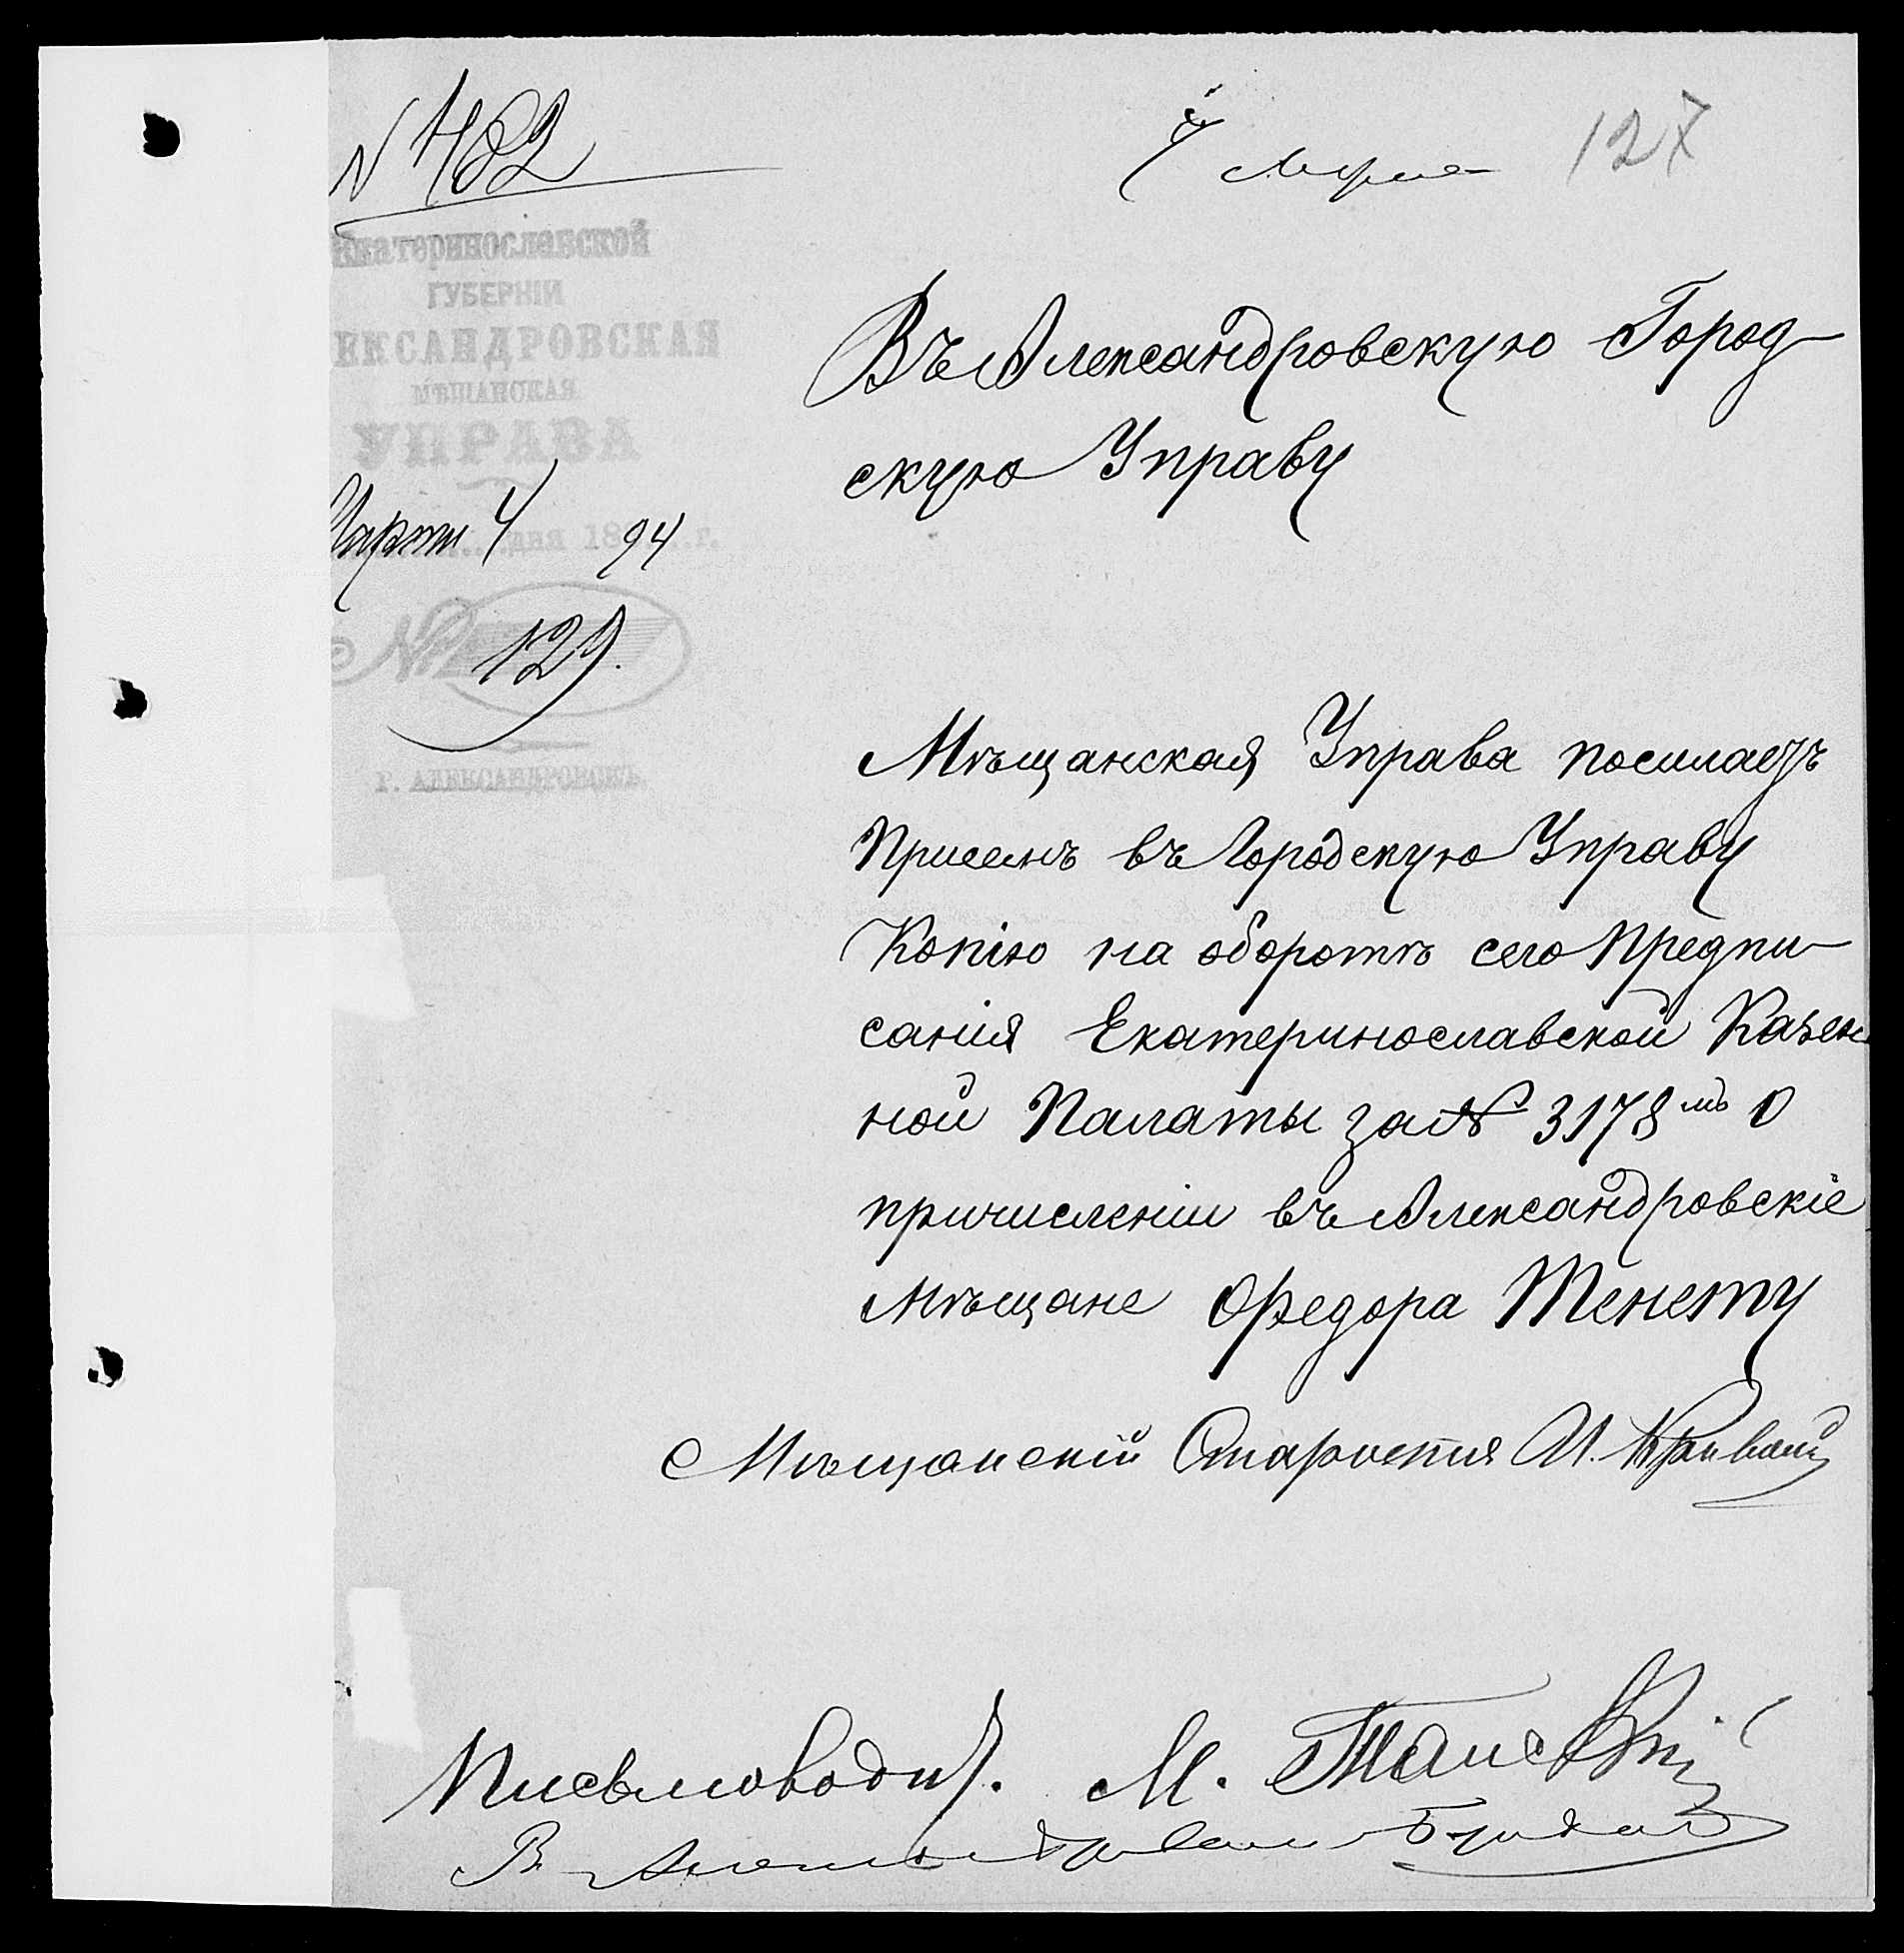 N 482
127
Екатеринославской
ГУБЕРНІИ
ЕКСАНДРОВСКАЯ
МѢЩАНСКАЯ
УПРАВА
Марта 4 дня 1894 г.
№ 129.
Г. АЛЕКСАНДРОВСКЪ.
Въ Александровскую Город-
скую Управу
Мѣщанская Управа посилаетъ
при семъ въ Городскую Управу
Копію на оборотѣ сего предпи-
санія Екатеринославской Казен
ной Палаты за № 3178 мъ о
причисленіи въ Александровскіе
мѣщане Федора Тенету
Мѣщанскій Староста И.
Письмоводит. М.